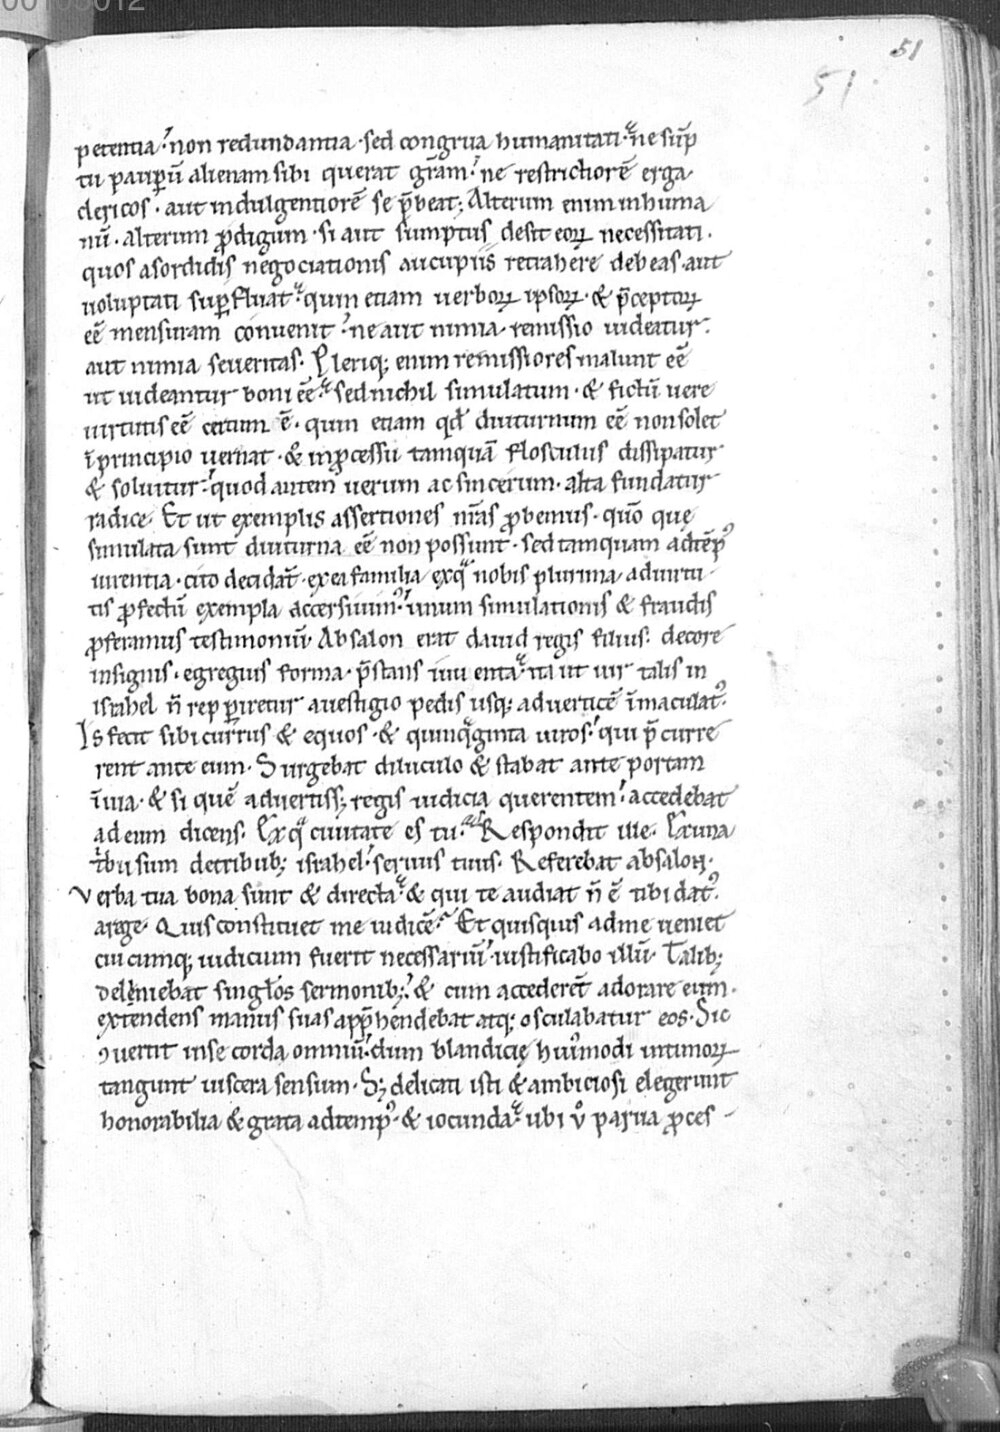 00105012
51
51
petentia. non redundantia. sed congrua humanitati. ne sūp
tu paupū alienam sibi querat grām. ne restrictiorē erga
clericos. aut indulgentiorē se p̄beat; Alterum enim inhuma
nū. alterum ꝓdigum. si aut sumptus desit eoꝝ necessitati.
quos a sordidis negociationis aucupiis retrahere debeas. aut
uoluptati suꝑfluat. quin etiam uerboꝝ ipsoꝝ. & p̄ceptoꝝ
eē mensuram conuenit. ne aut nimia remissio uideatur.
aut nimia seueritas. Pleriq; enim remissiores malunt eē
ut uideantur boni eē. sed nichil simulatum. & fictū uere
uirtutis eē certum ē. quin etiam qd̄ diuturnum eē non solet
ī principio uernat. & in ꝓcessu tamquā flosculus dissipatur
& soluitur. quod autem uerum ac sincerum. alta fundatur
radice. Et ut exemplis assertiones nr̄as ꝓbemus. quō quę
simulata sunt diuturna eē non possunt. sed tamquam ad tēp᾿
uirentia. cito decidāt. ex ea familia ex qͣ nobis plurima ad uirtu
tis ꝓfectū exempla accersiuim᾿. unum simulationis & fraudis
ꝓferamus testimoniū. Absalon erat dauid regis filius. decore
insignis. egregius forma. p̄stans iuuenta. ita ut uir talis in
israhel n̄ repꝑiretur a uestigio pedis usq; ad uerticē īmaculat᾿.
Is fecit sibi currus & equos. & quinqͣginta uiros. qui p̄curre
rent ante eum. Surgebat diluculo & stabat ante portam
ī uia. & si quē aduertiss; regis iudicia querentem. accedebat
ad eum dicens. Ex qͣ ciuitate es tu. Respondit ille. Ex una
tⁱbu sum de tribub; israhel. seruus tuus. Referebat absalon.
Verba tua bona sunt & directa. & qui te audiat n̄ ē tibi dat᾿.
a rege. Quis constituet me iudicē. Et quisquis ad me ueniet
cuicumq; iudicium fuerit necessariū. iustificabo illū. Talib;
deleniebat singl̄os sermonib;. & cum accederēt adorare eum.
extendens manus suas app̄hendebat atq; osculabatur eos. Sic
ꝯuertit in se corda omniū. dum blandicię hui᾿modi intimoꝝ
tangunt uiscera sensum. S; delicati isti & ambiciosi elegerunt
honorabilia & grata ad temp᾿. & iocunda. ubi uͦ parua ꝓces-